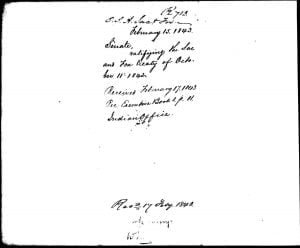 O.I.A. Sac & Fox
February 15. 1843.
Senate,
ratifying the Sac
and Fox treaty of Octo-
ber 11th 1842.
Received February 17, 1843
Executive Book 2 p. 11.
Indian Office
Rec'd 17 Feby 1843